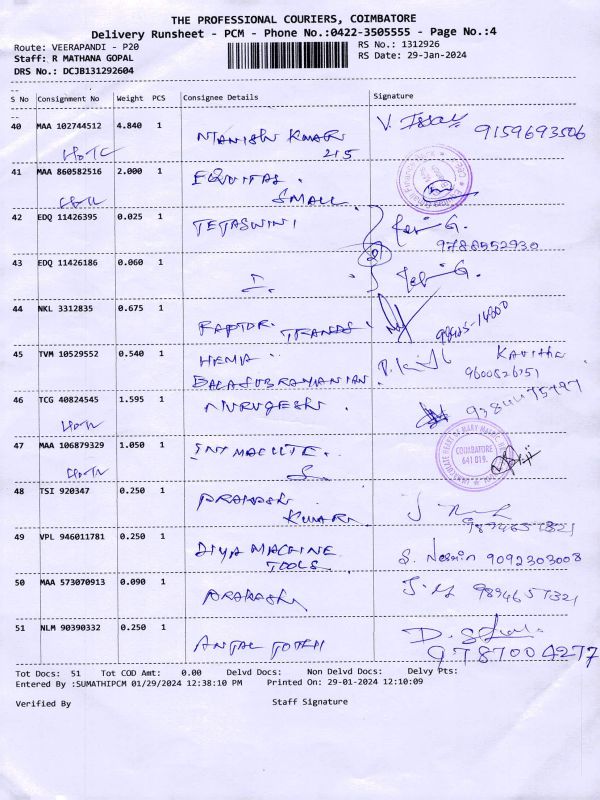 THE PROFESSIONAL COURIERS, COIMBATORE
Delivery Runsheet - PCM - Phone No.:0422-3505555 - Page No.:4
Route: VEERAPANDI - P20
RS No.: 1312926
Staff: R MATHANA GOPAL
RS Date: 29-Jan-2024
DRS No.: DCJB131292604
S No Consignment No Weight PCS Consignee Details Signature
40 MAA 102744512 4.840 1 MANISH KUMAR 9159693506
215
41 MAA 860582516 2.000 1 EQUITAS
SMALL
42 EDQ 11426395 0.025 1 TEJASWINI
9788552930
43 EDQ 11426186 0.060 1 I.
44 NKL 3312835 0.675 1 RAPTOR
45 TVM 10529552 0.540 1 HEMA KAVITHA
BALASUBRAMANIAN 9600826151
46 TCG 40824545 1.595 1 MURUGESH
47 MAA 106879329 1.050 1 COIMBATORE
641 019.
48 TSI 920347 0.250 1 PRAKASH
KUMAR 9894651321
49 VPL 946011781 0.250 1 DIYA MACHINE 9092303003
TOOLS
50 MAA 573070913 0.090 1 PRAKASH 9894651321
51 NLM 90390332 0.250 1 9787004277
Tot Docs: 51 Tot COD Amt: 0.00 Delvd Docs: Non Delvd Docs: Delvy Pts:
Entered By :SUMATHIPCM 01/29/2024 12:38:10 PM Printed On: 29-01-2024 12:10:09
Verified By Staff Signature